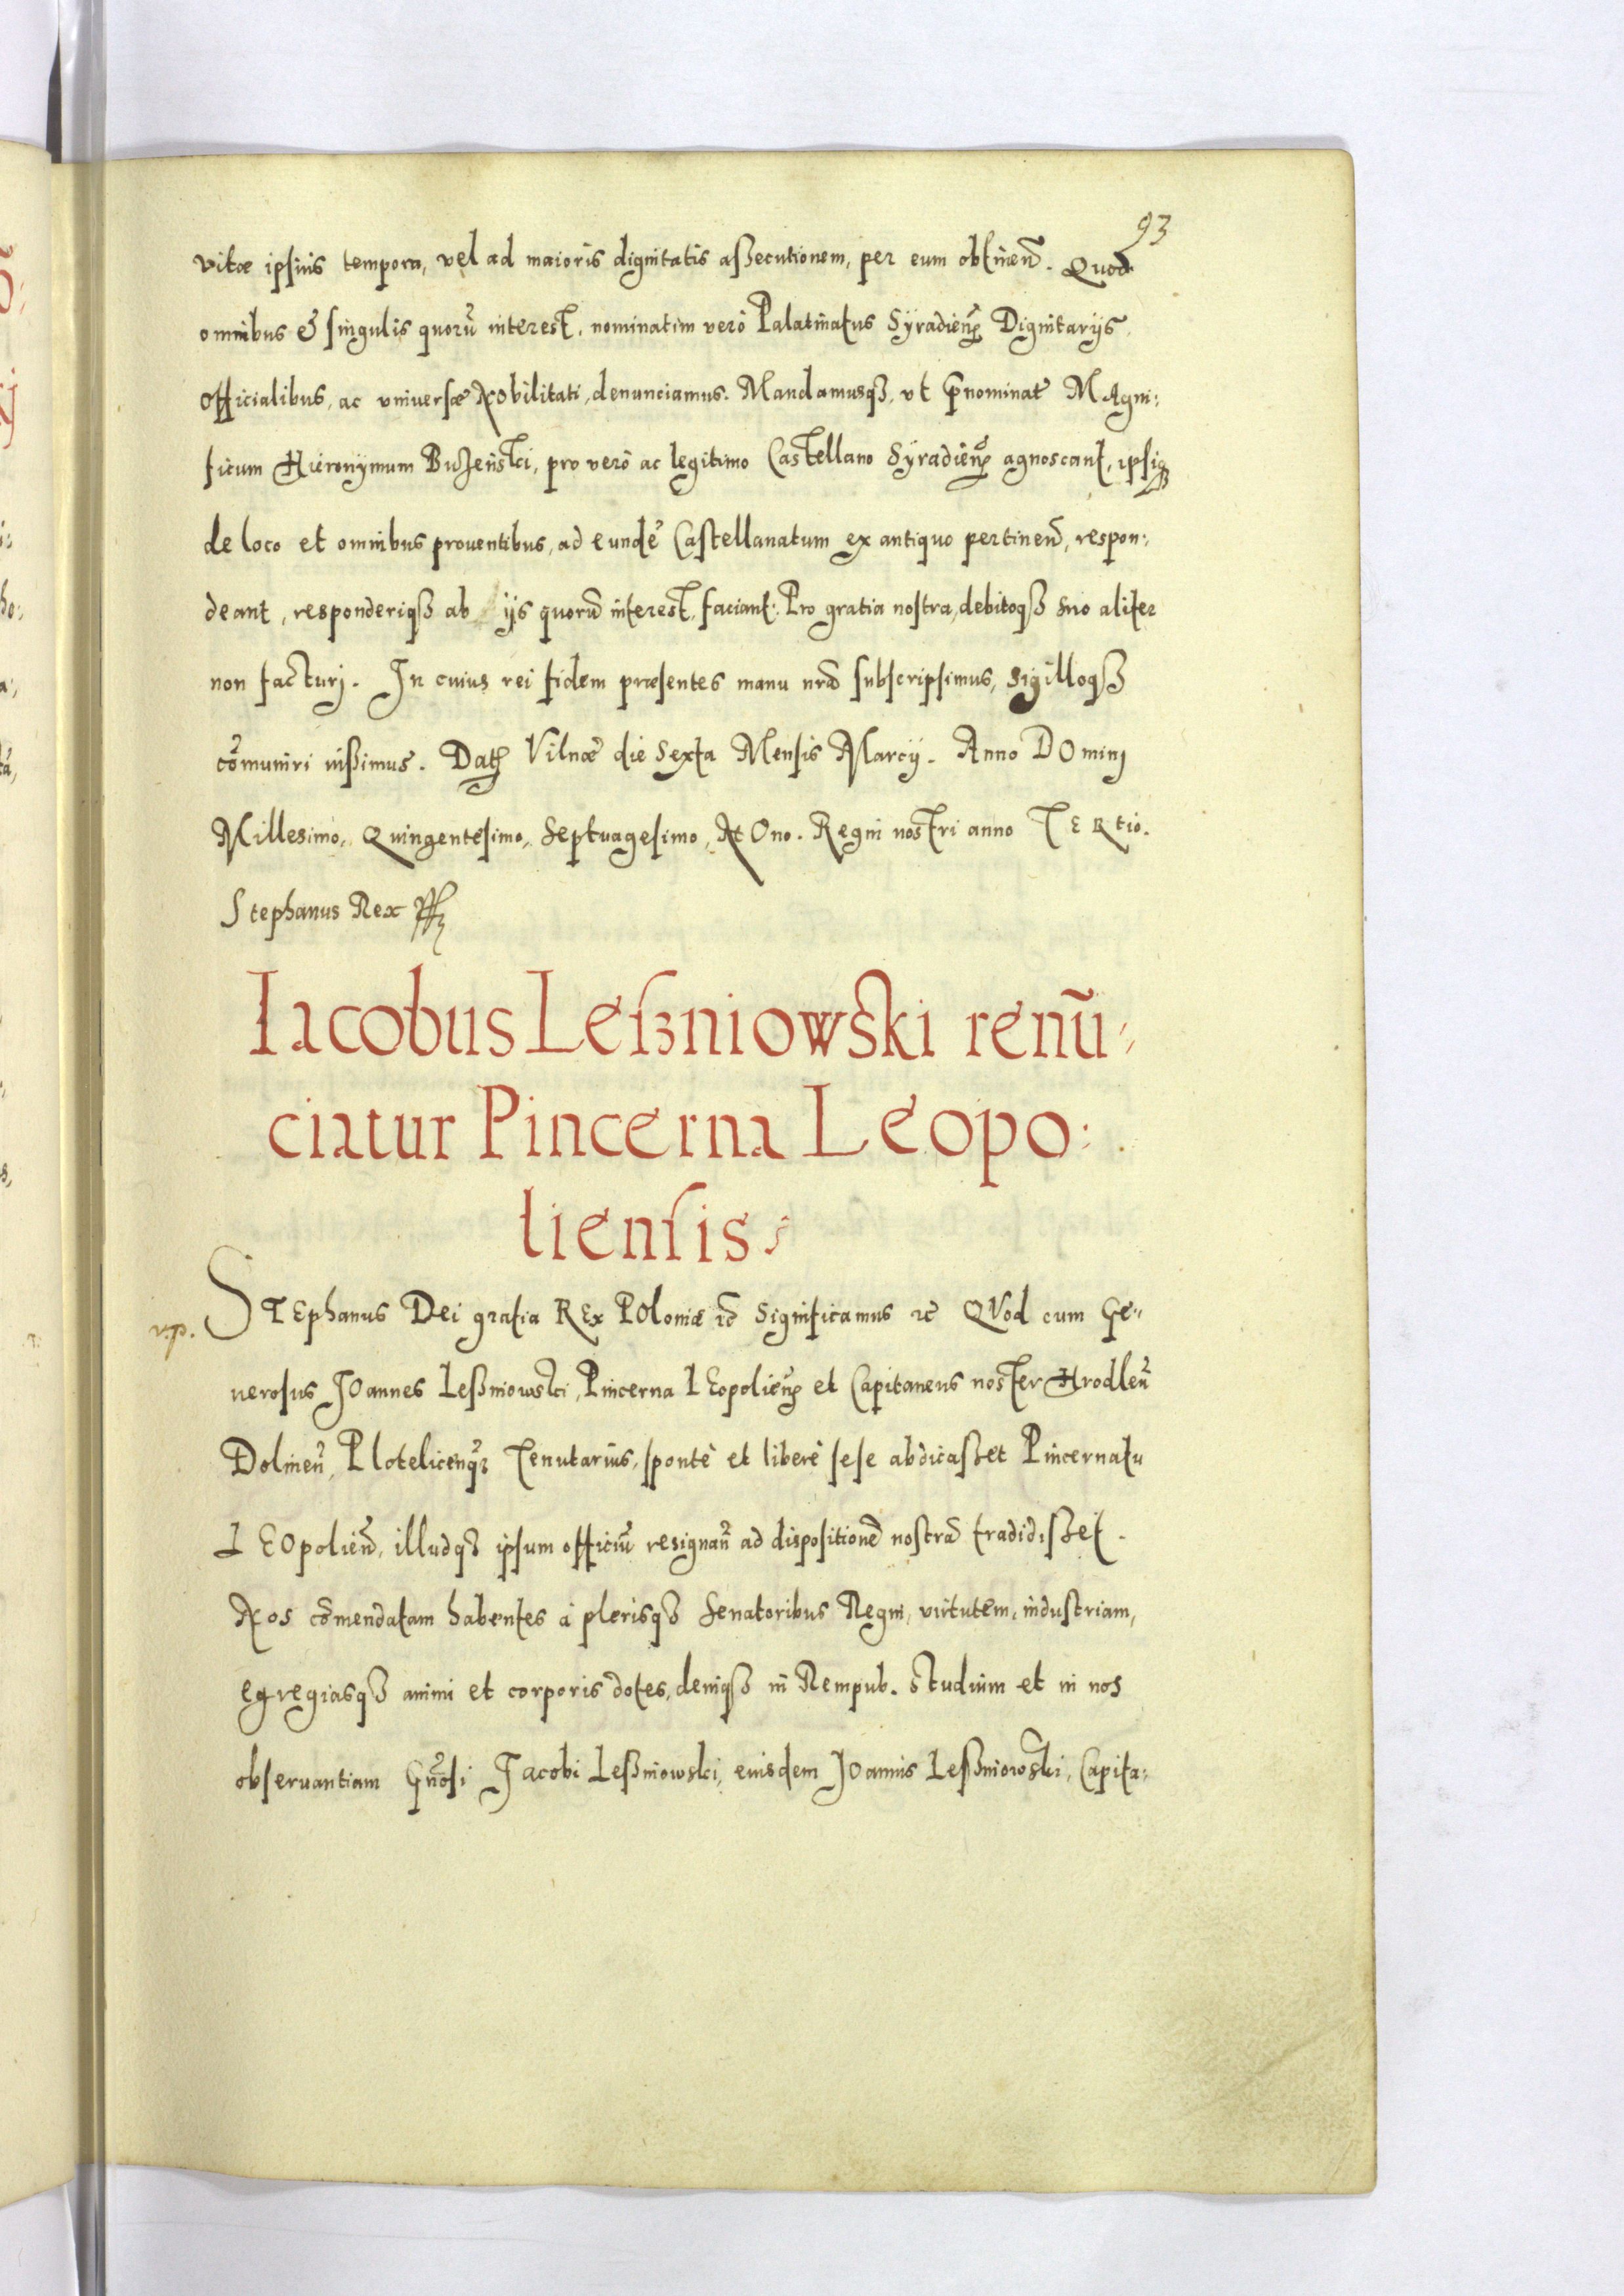 93
vitæ ipsius tempora, vel ad maioris dignitatis aßecutionem, per eum obtinen̄. Quod
omnibus & singulis quorū interest, nominatim verò Palatinatus Syradien̄ Dignitarijs,
Officialibus, ac vniversæ Nobilitati, denunciamus. Mandamusqȝ, vt p̄nominat̄ Magni:
ficum Hieronymum Buzenski, pro verò ac legitimo Castellano Syradien̄ agnoscant, ipsiqȝ
de loco et omnibus prouentibus, ad eundē Castellanatum ex antiquo pertinen̄, respon:
deant, responderiqȝ ab ijs quorū interest, faciant: Pro gratia nostra, debitoqȝ suo aliter
non facturj. In cuius rei fidem præsentes manu nr̄a subscripsimus, Sigilloqȝ
cōmuniri iußimus. Dat Vilnæ die Sexta Mensis Marcij. Anno DOminj
Millesimo, Quingentesimo, Septuagesimo, NOno. Regni nostri anno TERtio.
Stephanus Rex
Iacobus Leßniowski renū:
ciatur Pincerna Leopo:
liensis:
v.p.
STEphanus Dei gratia REx POloniæ ꝛc Significamus ꝛc QVod cum Ge:
nerosus JOannes Leßniowski, Pincerna LEopolien̄ et Capitaneus noster Hrodlen̄
Dolinen̄, Plotelicenqȝ Tenutarius, spontè et liberè sese abdicaßet Pincernatu
LEOpolien̄, illudqȝ ipsum officiū resignan̄ ad dispositionē nostrā tradidißet.
Nos cōmendatam habentes à plerisqȝ Senatoribus Regni, virtutem, industriam,
egregiasqȝ animi et corporis dotes, deniqȝ in Rempub. studium et in nos
obseruantiam Gn̄osi Jacobi Leßniowski, eiusdem JOannis Leßniowski, Capita: